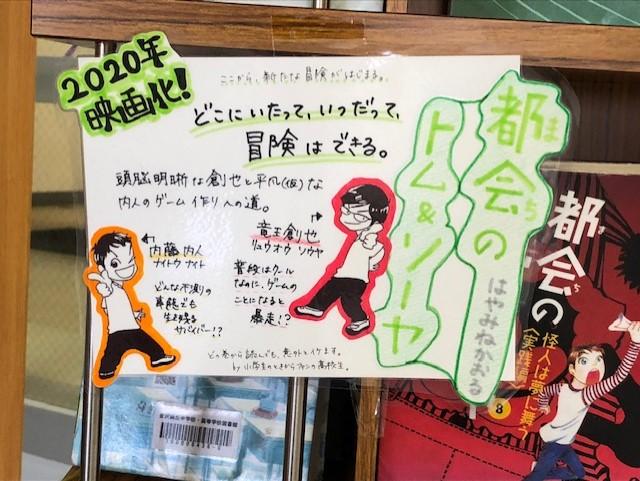 2020年
映画化!
ここから、新たな冒険がはじまる。
どこにいたって、いつだって、
冒険はできる。
頭脳明晰な創也と平凡(仮)な
内人のゲーム作りへの道。
内藤 内人
ナイトウ ナイト
どんな不測の
事態でも
生き残る
サバイバー!?
竜王創也
リュウオウ ソウヤ
普段はクール
なのに、ゲームの
ことになると
暴走!?
どの巻から読んでも、意外とイケます。
by 小学生のときからファンの高校生。
都会の
まち
トム&ソーヤ
はやみねかおる
都会の
まち
怪人は夢に舞う
〈実践編〉
8